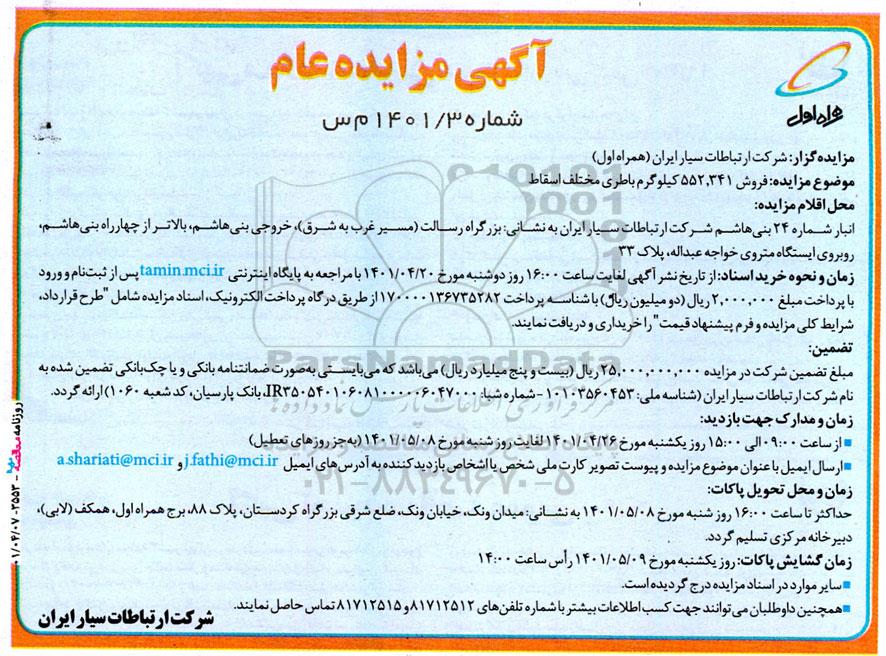 آگهی مزایده عام
شماره ۱۴۰۱/۳ م س
همراه اول
مزایده گزار: شرکت ارتباطات سیار ایران (همراه اول)
موضوع مزایده: فروش ۵۵۲,۳۴۱ کیلوگرم باطری مختلف اسقاط
محل اقلام مزایده:
انبار شماره ۲۴ بنی‌هاشم شرکت ارتباطات سیار ایران به نشانی: بزرگراه رسالت (مسیر غرب به شرق)، خروجی بنی‌هاشم، بالاتر از چهارراه بنی‌هاشم،
روبروی ایستگاه متروی خواجه عبداله، پلاک ۳۳
زمان و نحوه خرید اسناد: از تاریخ نشر آگهی لغایت ساعت ۱۶:۰۰ روز دوشنبه مورخ ۱۴۰۱/۰۴/۲۰ با مراجعه به پایگاه اینترنتی tamin.mci.ir پس از ثبت‌نام و ورود
با پرداخت مبلغ ۲,۰۰۰,۰۰۰ ریال (دو میلیون ریال) با شناسه پرداخت ۱۷۰۰۰۰۱۳۶۷۳۵۲۸۲ از طریق درگاه پرداخت الکترونیک، اسناد مزایده شامل "طرح قرارداد،
شرایط کلی مزایده و فرم پیشنهاد قیمت" را خریداری و دریافت نمایند.
تضمین:
مبلغ تضمین شرکت در مزایده ۲۵,۰۰۰,۰۰۰,۰۰۰ ریال (بیست و پنج میلیارد ریال) می‌باشد که می‌بایستی به‌صورت ضمانتنامه بانکی و یا چک‌بانکی تضمین شده به
نام شرکت ارتباطات سیار ایران (شناسه ملی: ۱۰۱۰۳۵۶۰۴۵۳ - شماره شبا: IR۳۵۰۵۴۰۱۰۶۰۸۱۰۰۰۰۰۶۰۴۷۰۰۰، بانک پارسیان، کد شعبه ۱۰۶۰) ارائه گردد.
زمان و مدارک جهت بازدید:
■ از ساعت ۰۹:۰۰ الی ۱۵:۰۰ روز یکشنبه مورخ ۱۴۰۱/۰۴/۲۶ لغایت روز شنبه مورخ ۱۴۰۱/۰۵/۰۸ (به‌جز روزهای تعطیل)
■ ارسال ایمیل با عنوان موضوع مزایده و پیوست تصویر کارت ملی شخص یا اشخاص بازدیدکننده به آدرس‌های ایمیل j.fathi@mci.ir و a.shariati@mci.ir
زمان و محل تحویل پاکات:
حداکثر تا ساعت ۱۶:۰۰ روز شنبه مورخ ۱۴۰۱/۰۵/۰۸ به نشانی: میدان ونک، خیابان ونک، ضلع شرقی بزرگراه کردستان، پلاک ۸۸، برج همراه اول، همکف (لابی)،
دبیرخانه مرکزی تسلیم گردد.
زمان گشایش پاکات: روز یکشنبه مورخ ۱۴۰۱/۰۵/۰۹ رأس ساعت ۱۴:۰۰
■ سایر موارد در اسناد مزایده درج گردیده است.
■ همچنین داوطلبان می‌توانند جهت کسب اطلاعات بیشتر با شماره تلفن‌های ۸۱۷۱۲۵۱۲ و ۸۱۷۱۲۵۱۵ تماس حاصل نمایند.
شرکت ارتباطات سیار ایران
روزنامه مناقصه - ۳۵۵۳ - ۰۱/۰۴/۰۷
ParsNamadData
۰۲۱-۸۸۳۴۹۶۷۰-۵